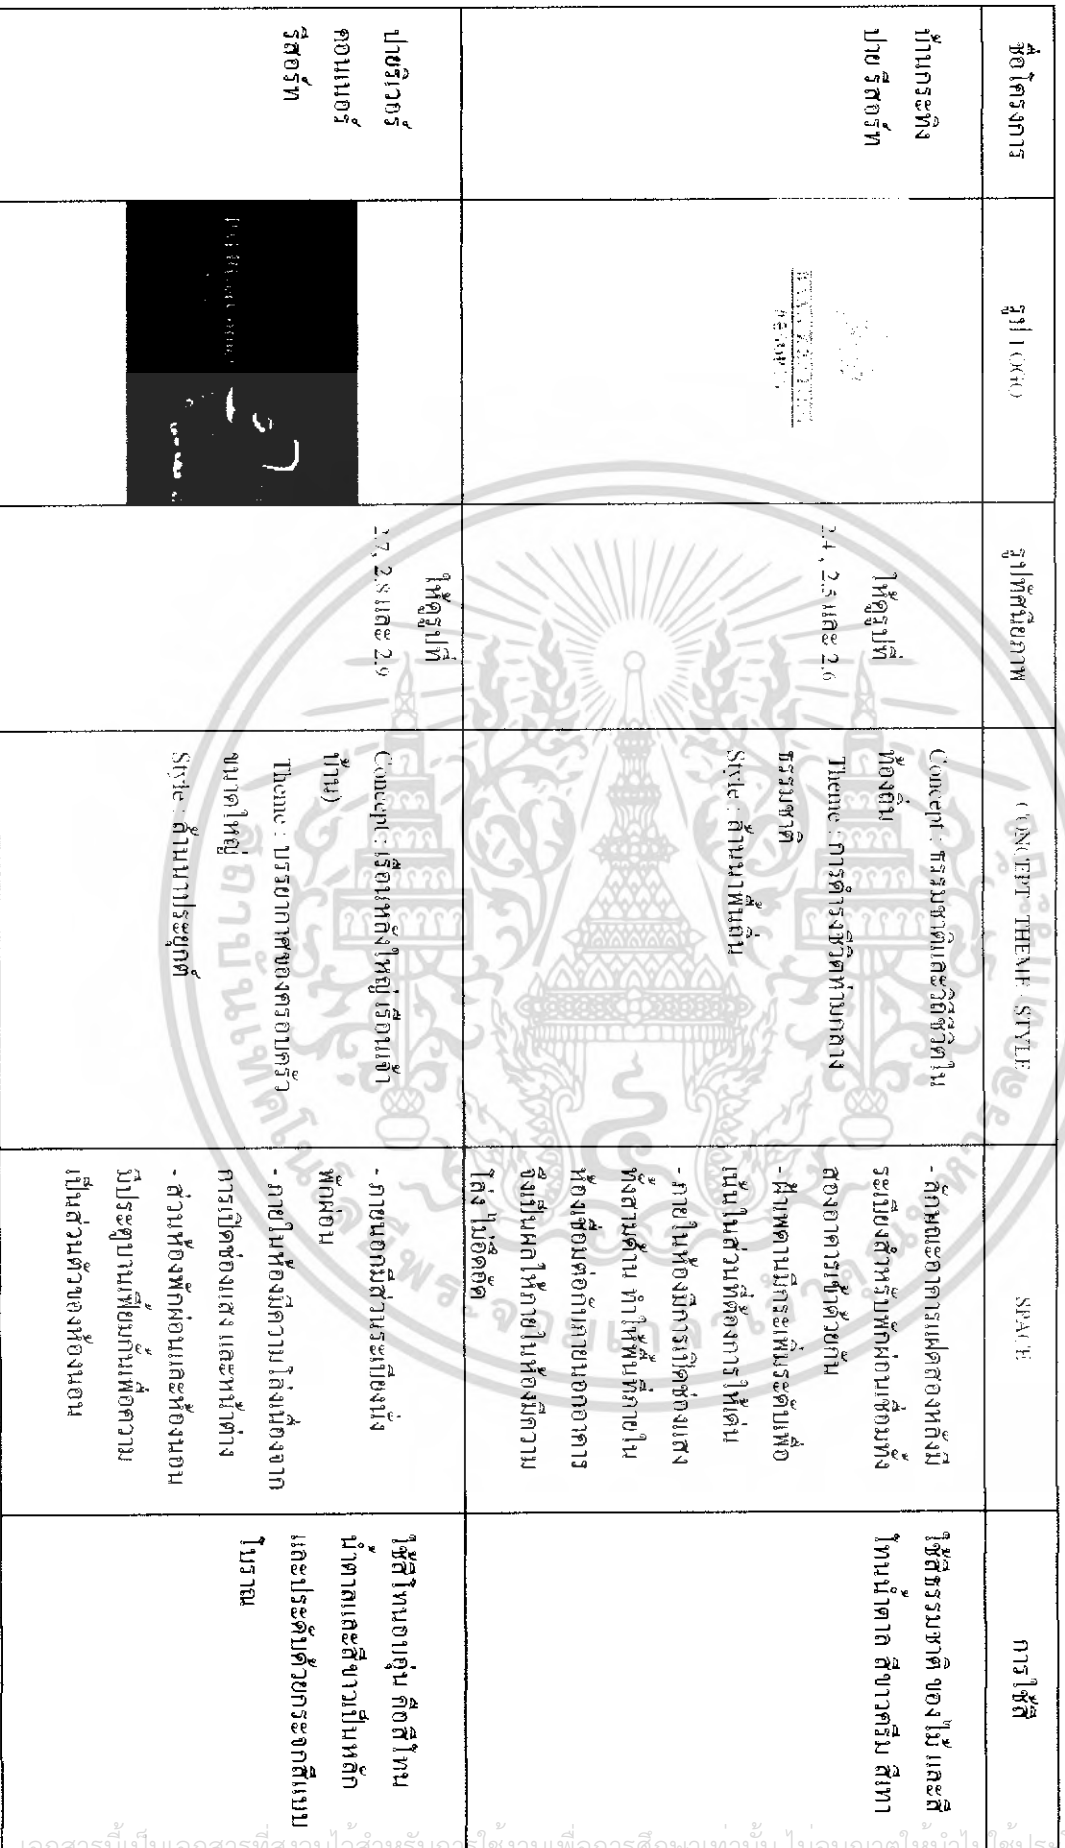 ชื่อโครงการ
รูป LOGO
รูปทัศนียภาพ
CONCEPT THEME STYLE
SPACE
การใช้สี
บ้านกระทิง
ปาย รีสอร์ท
ให้ดูรูปที่
2.4 , 2.5 และ 2.6
Concept : ธรรมชาติและวิถีชีวิตใน
ท้องถิ่น
Theme : การดำรงชีวิตท่ามกลาง
ธรรมชาติ
Style : ล้านนาพื้นถิ่น
- ลักษณะอาคารแฝดสองหลังมี
ระเบียงสำหรับพักผ่อนเชื่อมทั้ง
สองอาคารเข้าด้วยกัน
- ฝ้าเพดานมีการเพิ่มระดับเพื่อ
เน้นในส่วนที่ต้องการให้เด่น
- ภายในห้องมีการเปิดช่องแสง
ทั้งสามด้าน ทำให้พื้นที่ภายใน
ห้องเชื่อมต่อกับภายนอกอาคาร
จึงเป็นผลให้ภายในห้องมีความ
โล่ง ไม่อึดอัด
ใช้สีธรรมชาติ ของไม้ และสี
โทนน้ำตาล สีขาวครีม สีเทา
ปายริเวอร์
คอนเนอร์
รีสอร์ท
ให้ดูรูปที่
2.7, 2.8 และ 2.9
Concept : เรือนหลังใหญ่ (เรือนเจ้า
บ้าน)
Theme : บรรยากาศของครอบครัว
ขนาดใหญ่
Style : ล้านนาประยุกต์
- ภายนอกมีส่วนระเบียงนั่ง
พักผ่อน
- ภายในห้องมีความโล่งเนื่องจาก
การเปิดช่องแสง และหน้าต่าง
- ส่วนห้องพักผ่อนและห้องนอน
มีประตูบานเฟี้ยมกั้นเพื่อความ
เป็นส่วนตัวของห้องนอน
ใช้สีโทนอบอุ่น คือสีโทน
น้ำตาลและสีขาวเป็นหลัก
และประดับด้วยกระจกสีแบบ
โบราณ